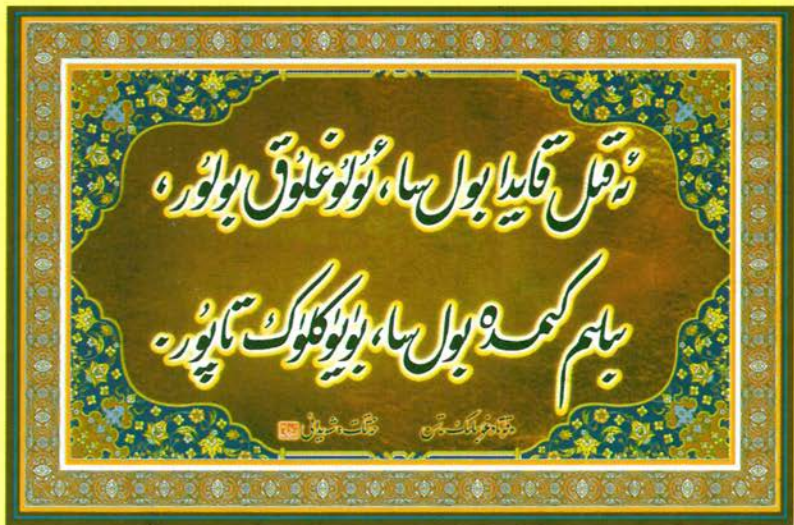 ئەقىل قايدا بولسا، ئۇلۇغلۇق بولۇر،
بىلىم كىمدە بولسا، بۈيۈكلۈك تاپۇر.